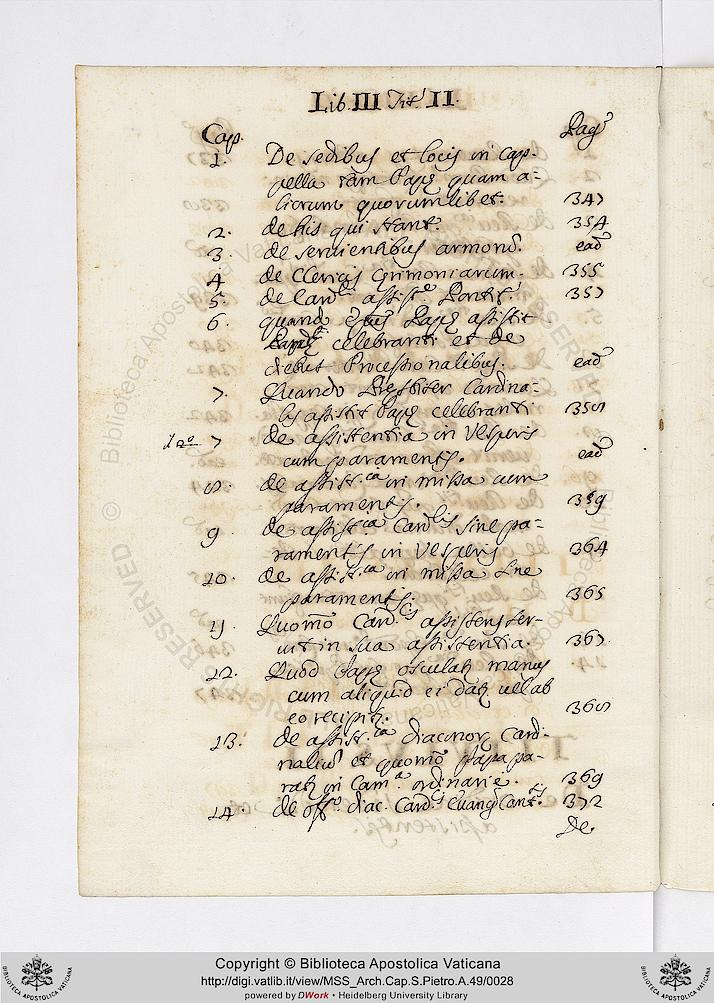 Lib. III Tit. II.
Cap. Pag.
1. De sedibus et locis in cap-
pella tam Papæ quam a-
liorum quorumlibet. 347
2. de his qui stant. 354
3. de seruientibus armorũ. ead
4 de Clericis Cerimoniarum. 355
5. de Card. assist.e Pontif. 357
6. quando Papæ assistit
celebranti et de
diebus Processionalibus. ead
7. Quando Presbiter Cardina-
lis assistit Papæ celebranti 358
7 de assistentia in Vesperis
cum paramentis. ead
8. de assist.ia in missa cum
paramentis. 359
9. de assist.ia Card.lis sine pa-
ramentis in Vesperis 364
10. de assist.ia in missa sine
paramentis. 365
11. Quomõ Card.lis assistens ser-
uit in sua assistentia. 367
12. Quod Papæ osculat manus
cum aliquid ei dat uel ab
eo recipit. 368
13. de assist.ia diaconor Cardi-
naliũ et quomõ Papa pa-
rat in Cam.a ordinarie. 369
14. de off.o diac. Card.lis Euang. Cant. 372
De.
© Biblioteca Apostolica Vaticana
ALL RIGHTS RESERVED
Copyright © Biblioteca Apostolica Vaticana
http://digi.vatlib.it/view/MSS_Arch.Cap.S.Pietro.A.49/0028
powered by DWork • Heidelberg University Library
BIBLIOTECA APOSTOLICA VATICANA
BIBLIOTECA APOSTOLICA VATICANA